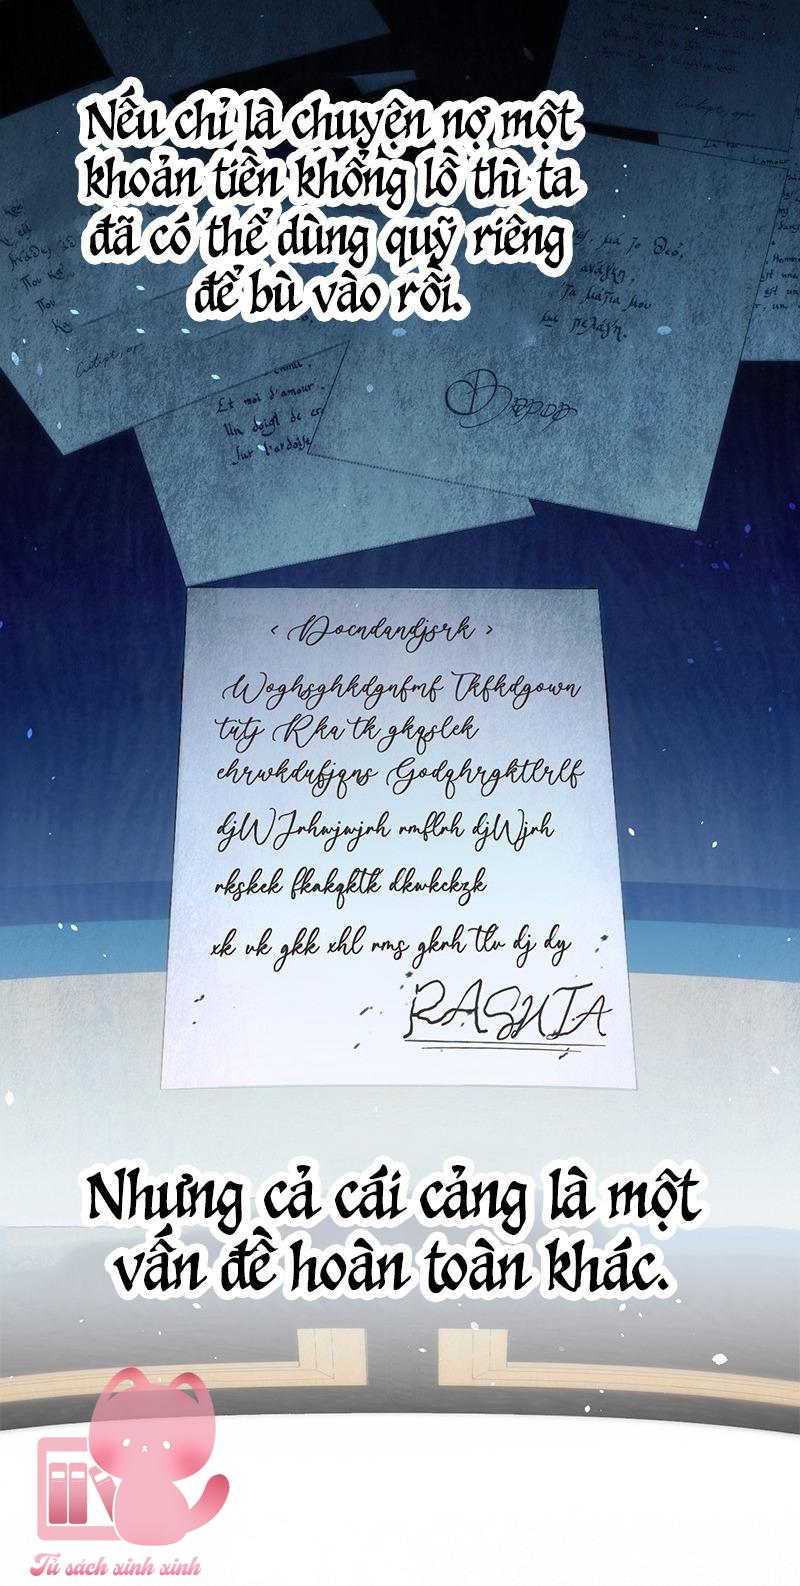 Nếu chỉ là chuyện nợ một
khoản tiền khổng lồ thì ta
đã có thể dùng quỹ riêng
để bù vào rồi.
μα το θεό,
ανάγκη,
Τα μάτια μου
και πελάγη.
Που
Που
Et moi d'amour
Un doigt de cr
Sur l'ardoise
< Docndandjsrk >
Woghsghkdgnfmf Tkfkdgown
tutj Rka tk gkqslek
chrwkdufjqns Godqhrgktlrlf
djWJrhwjwjrh rmflrh djWjrh
rkskek fkakqktk dkwkckzk
xk vk gkk xhl rms gkrh tlv dj dy
RASHTA
Nhưng cả cái cảng là một
vấn đề hoàn toàn khác.
Tủ sách xinh xinh